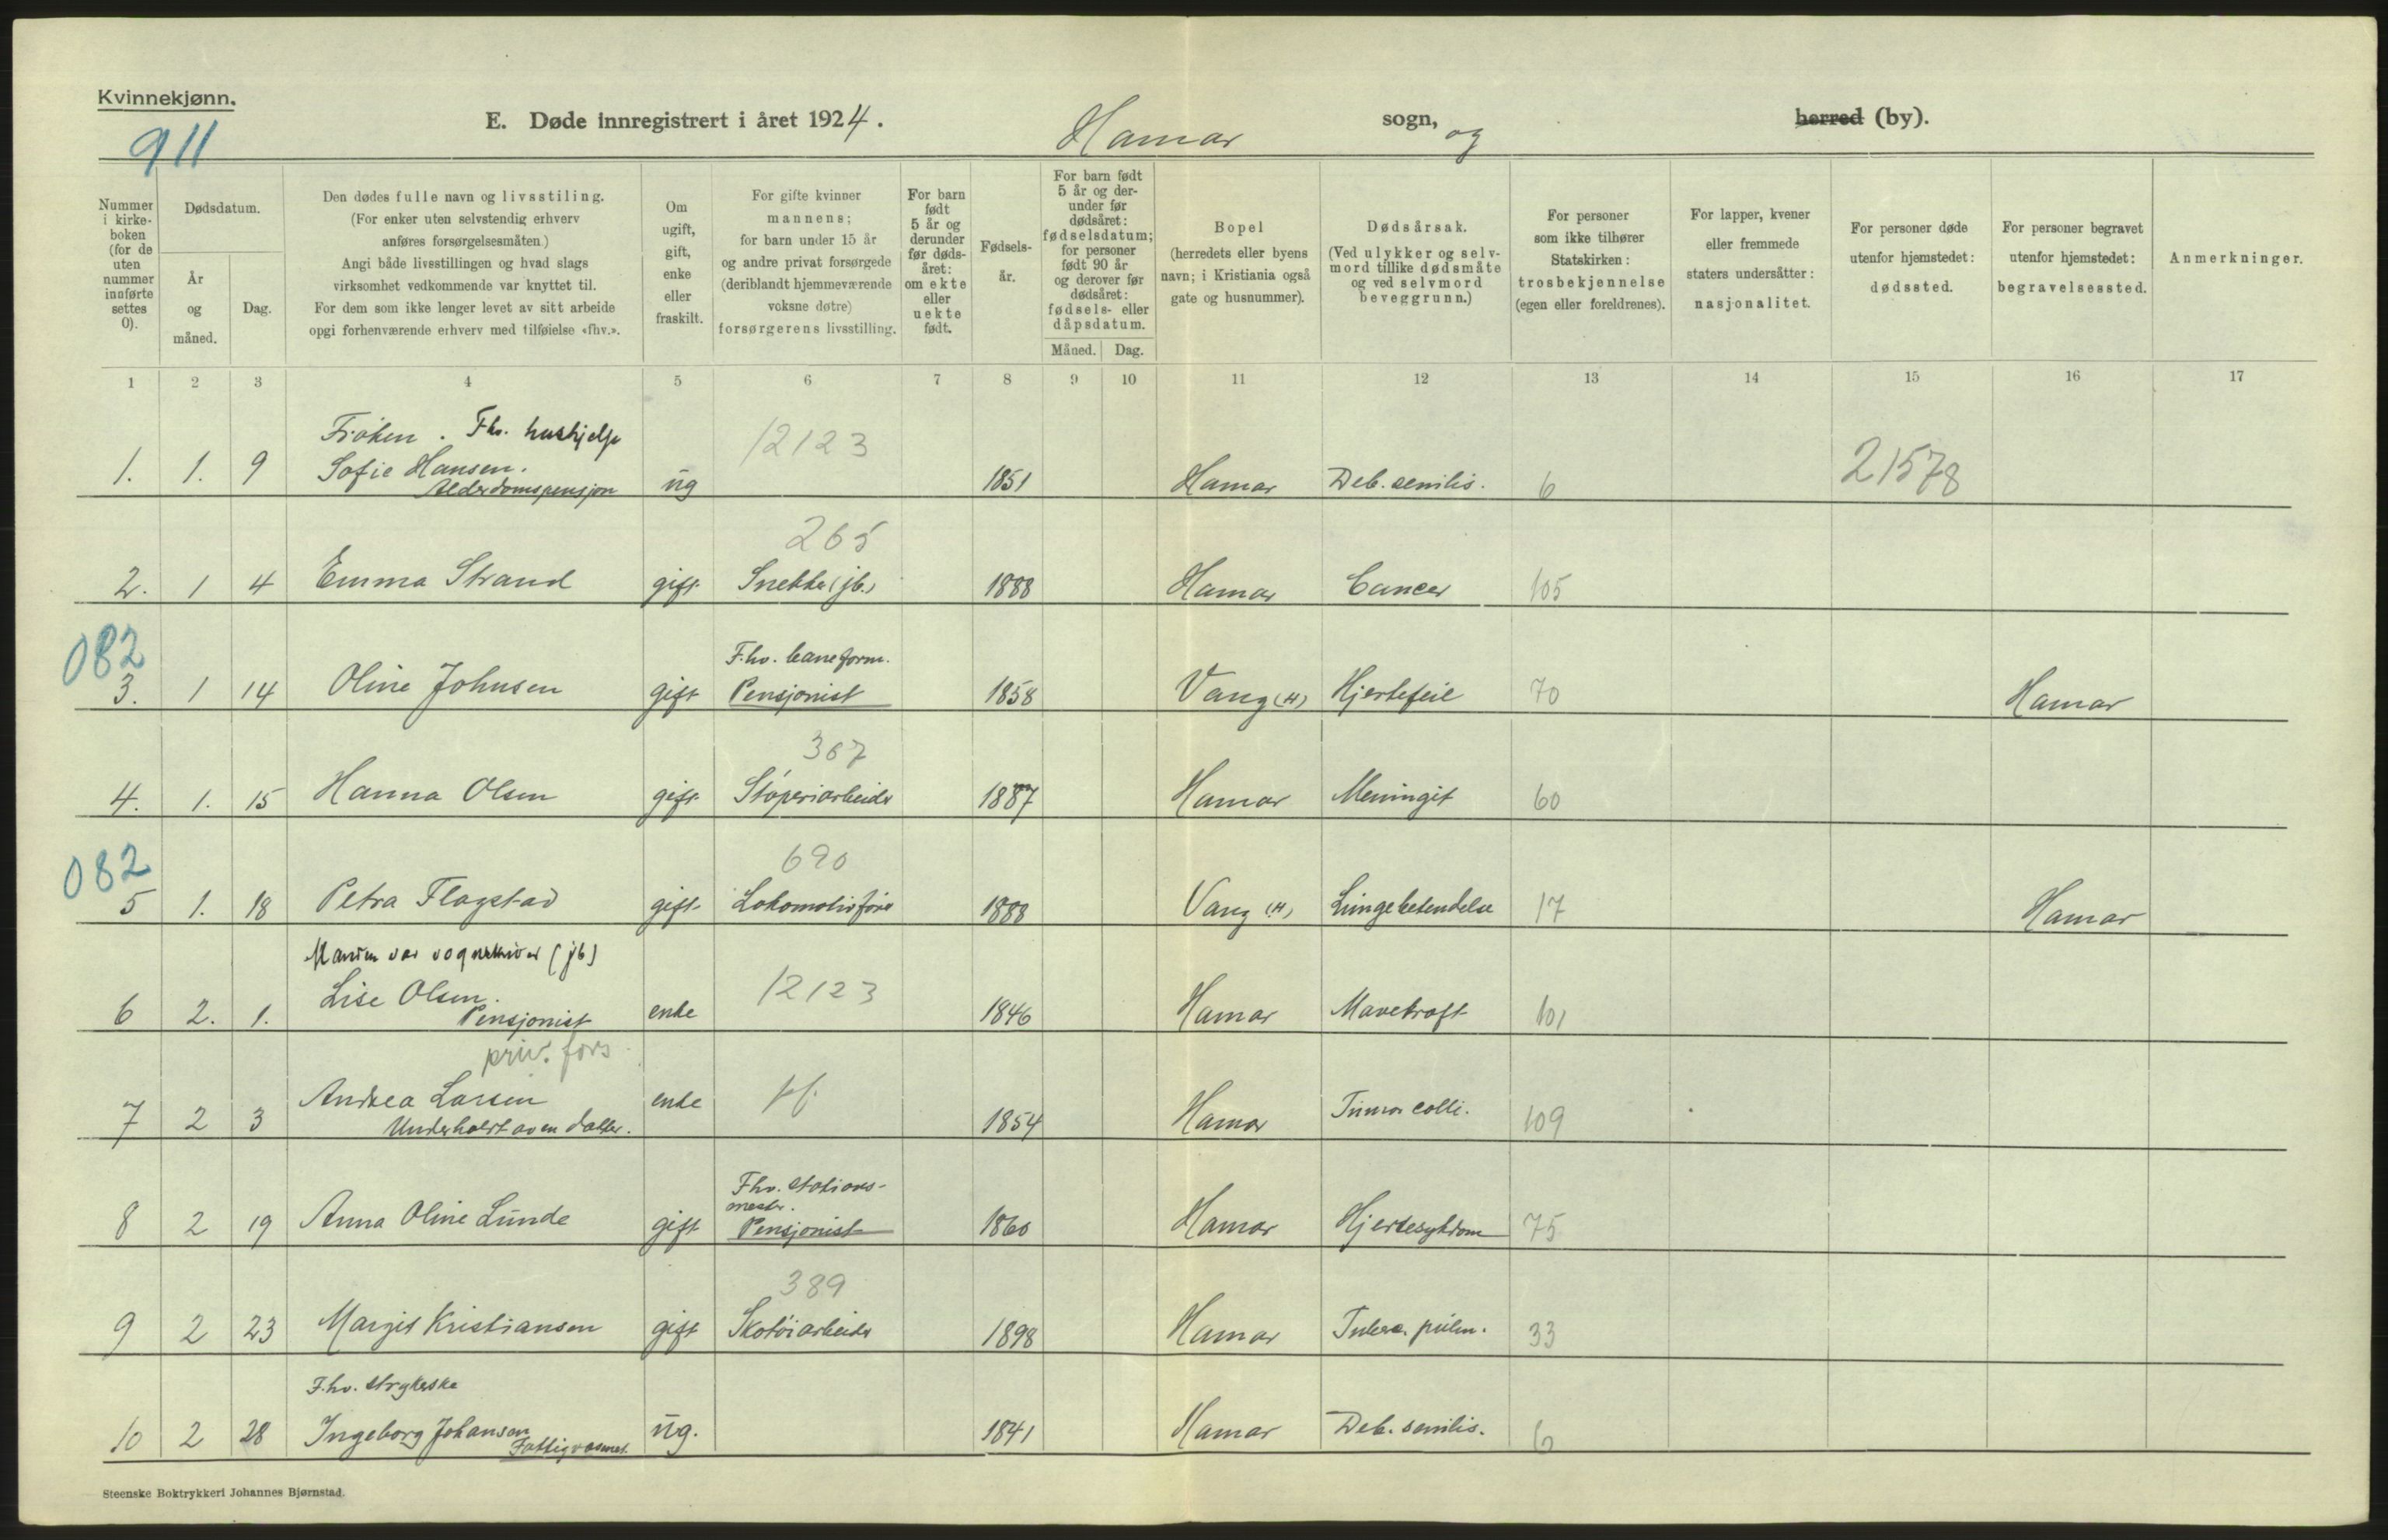 Kvinnekjønn.
911
E. Døde innregistrert i året 1924. Hamar sogn, og herred (by).
Nummer i kirkeboken (for de uten nummer innførte settes 0).
Dødsdatum.
År og måned.
Dag.
Den dødes fulle navn og livsstiling.
(For enker uten selvstendig erhverv
anføres forsørgelsesmåten.)
Angi både livsstillingen og hvad slags
virksomhet vedkommende var knyttet til.
For dem som ikke lenger levet av sitt arbeide
opgi forhenværende erhverv med tilføielse «fhv.».
Om ugift, gift, enke eller fraskilt.
For gifte kvinner
mannens;
for barn under 15 år
og andre privat forsørgede
(deriblandt hjemmeværende
voksne døtre)
forsørgerens livsstilling.
For barn født 5 år og derunder før dødsåret: om ekte eller uekte født.
Fødselsår.
For barn født 5 år og derunder før dødsåret: fødselsdatum; for personer født 90 år og derover før dødsåret: fødsels- eller dåpsdatum.
Måned. Dag.
Bopel
(herredets eller byens
navn; i Kristiania også
gate og husnummer).
Dødsårsak.
(Ved ulykker og selvmord tillike dødsmåte og ved selvmord beveggrunn.)
For personer
som ikke tilhører
Statskirken:
trosbekjennelse
(egen eller foreldrenes).
For lapper, kvener
eller fremmede
staters undersåtter:
nasjonalitet.
For personer døde
utenfor hjemstedet:
dødssted.
For personer begravet
utenfor hjemstedet:
begravelsessted.
Anmerkninger.
1 2 3 4 5 6 7 8 9 10 11 12 13 14 15 16 17
Frøken. Fhv. hushjelp 12123
1. 1. 9 Sofie Hansen. ug 1851 Hamar Deb. senilis. 6 21578
Alderdomspensjon
265
2. 1 4 Emma Strand gift Snekker (jb.) 1888 Hamar Cancer 105
082
F.hv. baneform.
3. 1 14 Oline Johnsen gift Pensjonist 1858 Vang (H) Hjertefeil 70 Hamar
367
4. 1. 15 Hanna Olsen gift Støperiarbeider 1887 Hamar Meningit 60
082
690
5 1. 18 Petra Flagstad gift Lokomotivfører 1888 Vang (H) Lungebetendelse 17 Hamar
Mannen var vognskriver (jb)
6 2. 1. Lise Olsen. enke 12123 1846 Hamar Mavekræft 101
Pensjonist
priv. fors.
7 2 3 Andrea Larsen enke pf. 1854 Hamar Tumor colli. 109
Underholdt av en datter.
Fhv. stationsmester.
8 2 19 Anna Oline Lunde gift Pensjonist 1860 Hamar Hjertesykdom 75
389
9 2 23 Margit Kristiansen gift Skotøiarbeider 1898 Hamar Tuberc. pulm. 33
F.hv. strykeske
10 2 28 Ingeborg Johansen ug. 1841 Hamar Deb. senilis. 6
Fattigvæsenet.
Steenske Boktrykkeri Johannes Bjørnstad.